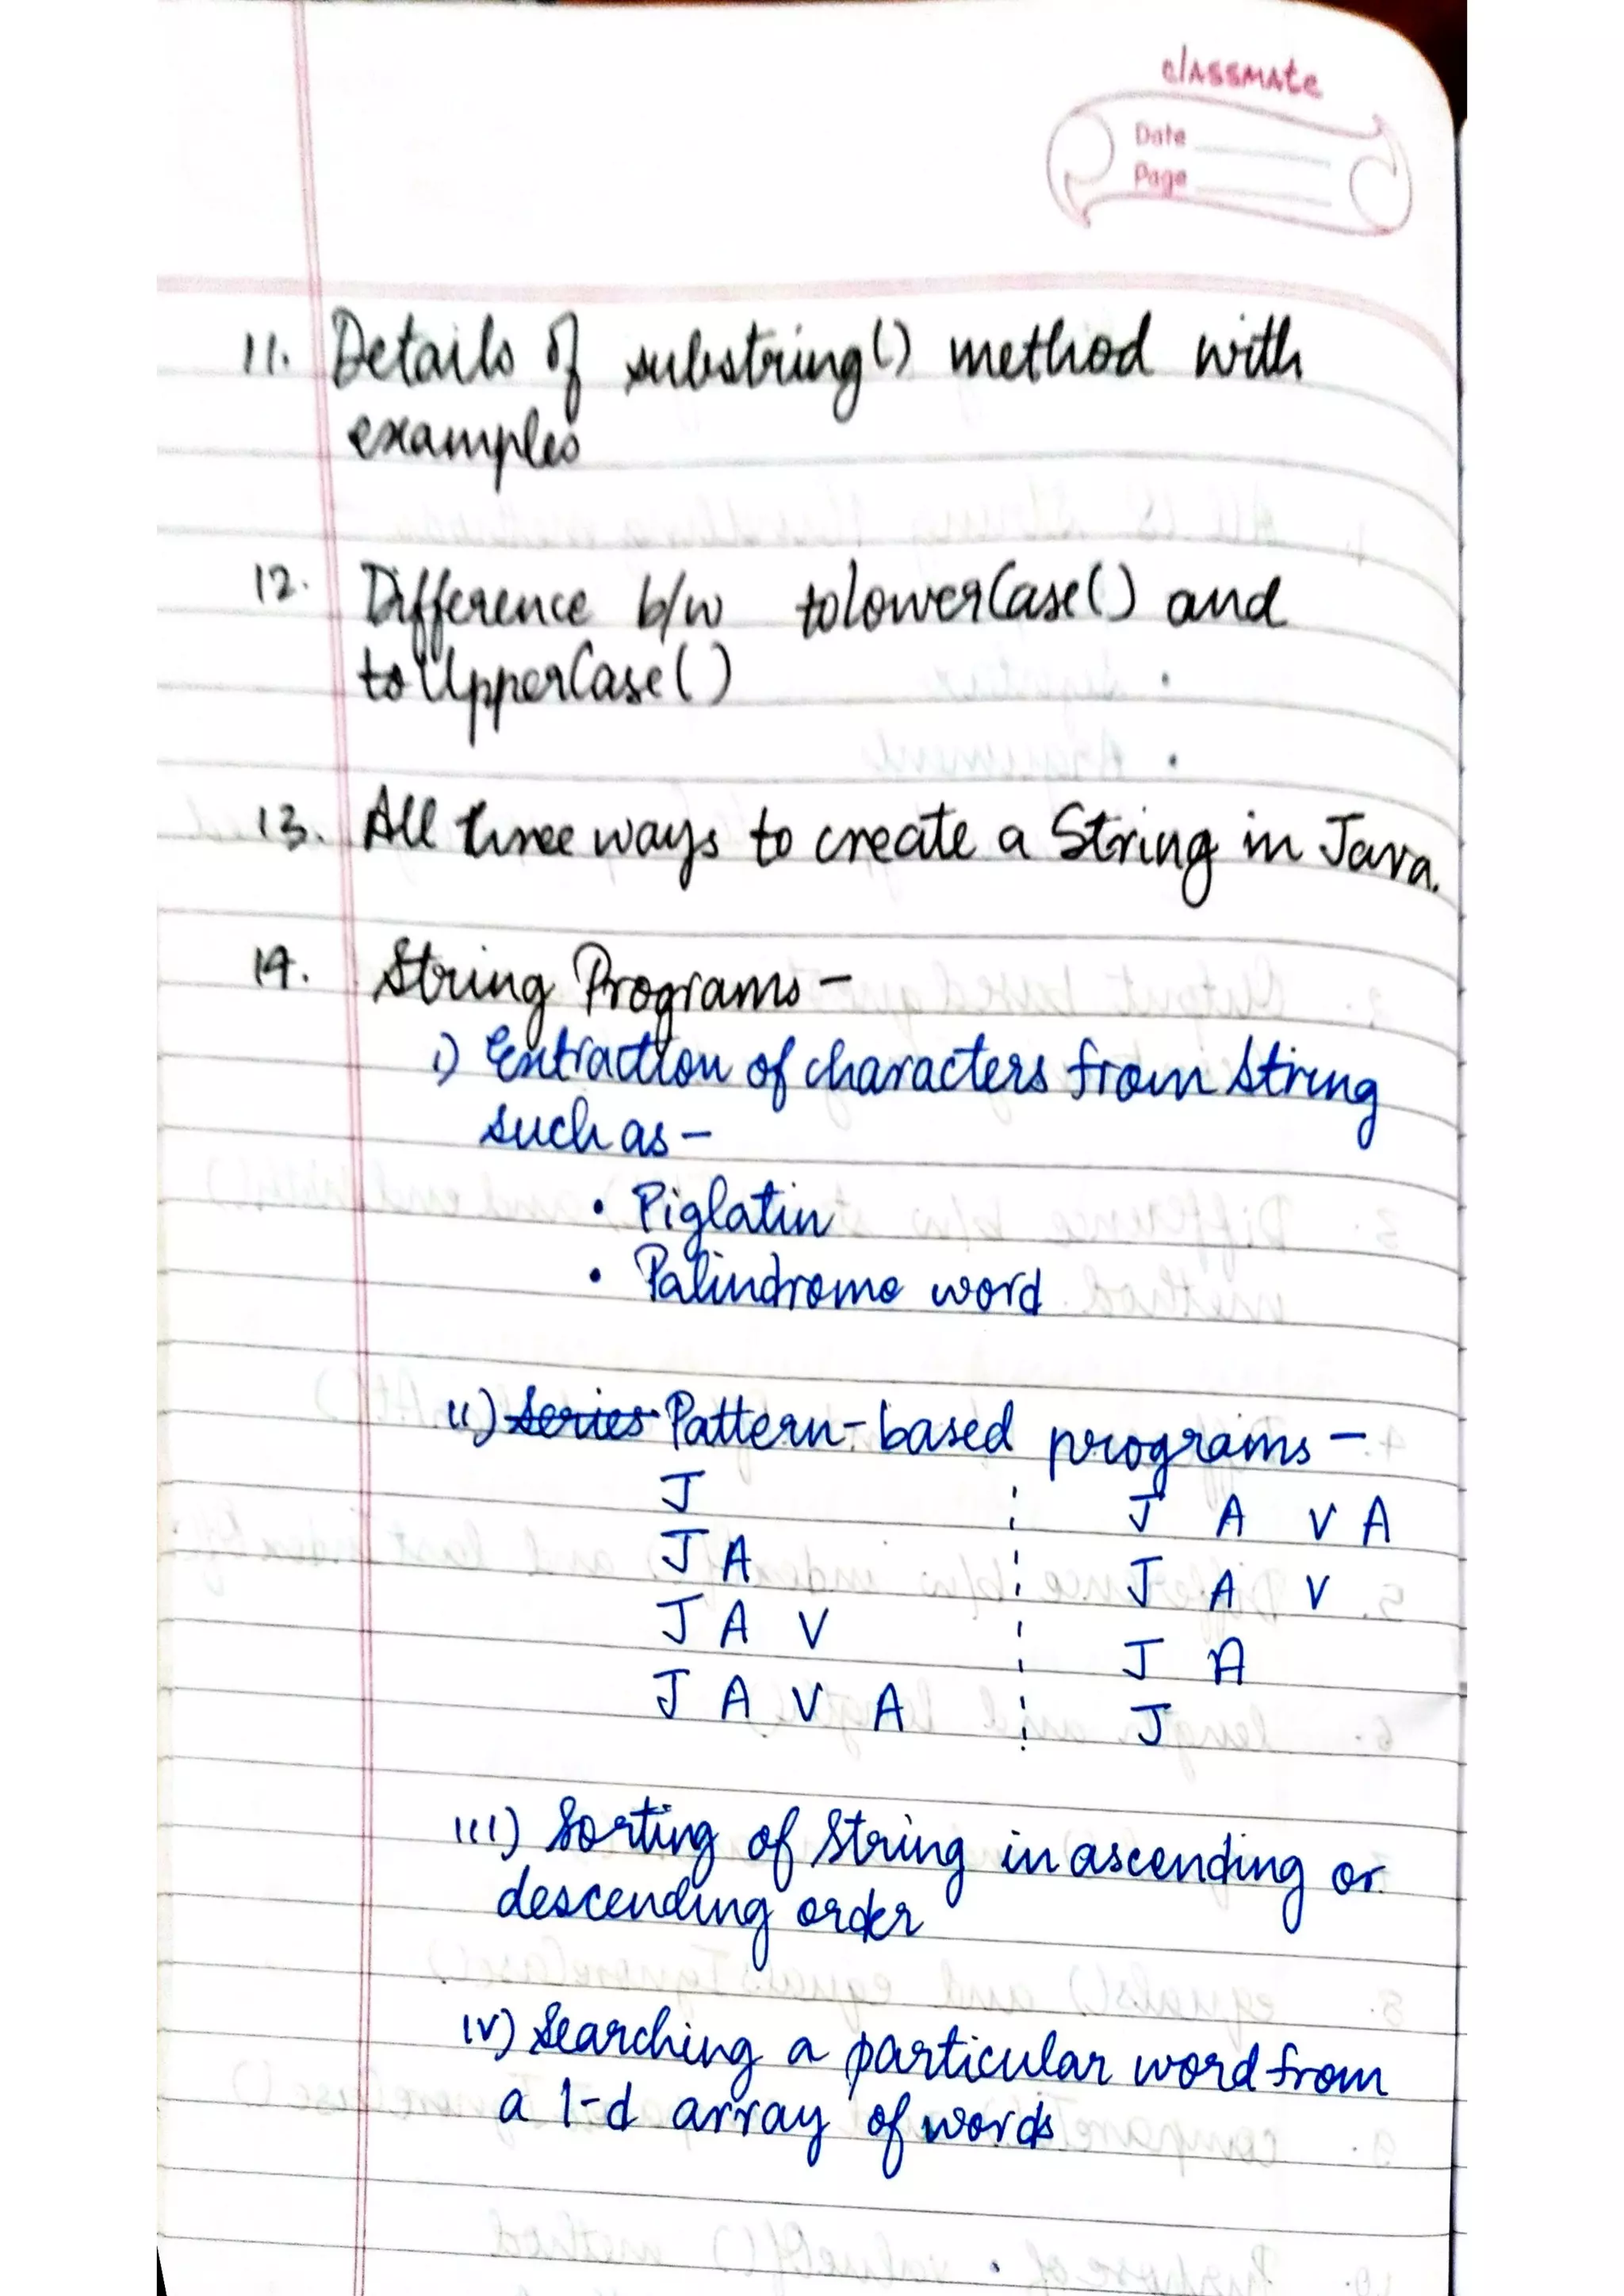 classmate
Date
Page
11. Details of substring() method with
examples
12. Difference b/w toLowerCase() and
toUpperCase()
13. All three ways to create a String in Java.
14. String Programs -
i) Extraction of characters from String
such as -
• Piglatin
• Palindrome word
ii) Series Pattern-based programs -
J ¦ J A V A
J A ¦ J A V
J A V ¦ J A
J A V A ¦ J
iii) Sorting of String in ascending or
descending order
iv) Searching a particular word from
a 1-d array of words